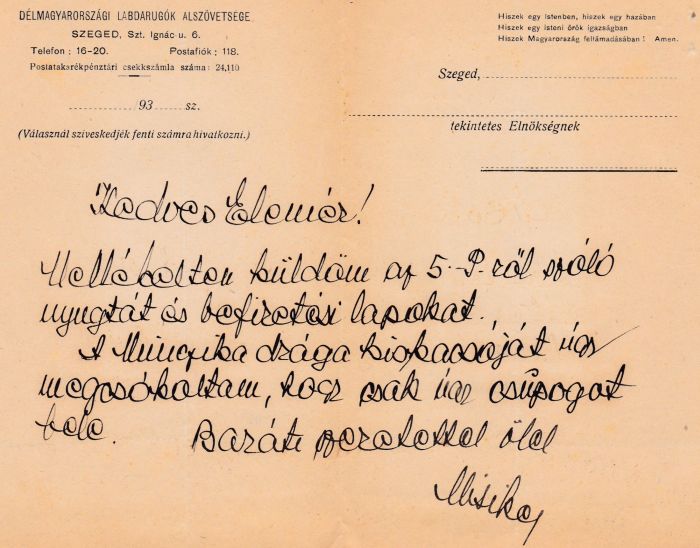 DÉLMAGYARORSZÁGI LABDARUGÓK ALSZÖVETSÉGE
SZEGED, Szt. Ignác u. 6.
Telefon: 16-20. Postafiók: 118.
Postatakarékpénztári csekkszámla száma: 24,110
93 sz.
(Válasznál szíveskedjék fenti számra hivatkozni.)
Hiszek egy istenben, hiszek egy hazában
Hiszek egy isteni örök igazságban
Hiszek Magyarország fellámadásában! Amen.
Szeged,
tekintetes Elnökségnek
Kedves Elemér!
Mellékelten küldöm az 5.-P.-ről szóló
nyugtát és befizetési lapokat.
A Minczika drága kis kacsóját úgy
megcsókoltam, hogy csak úgy csüpogot
bele.
Baráti szeretettel ölel
Misika